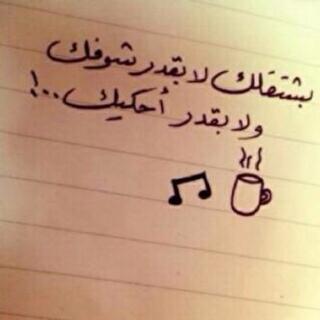 بشتقلك لا بقدر شوفك
ولا بقدر أحكيك ...!